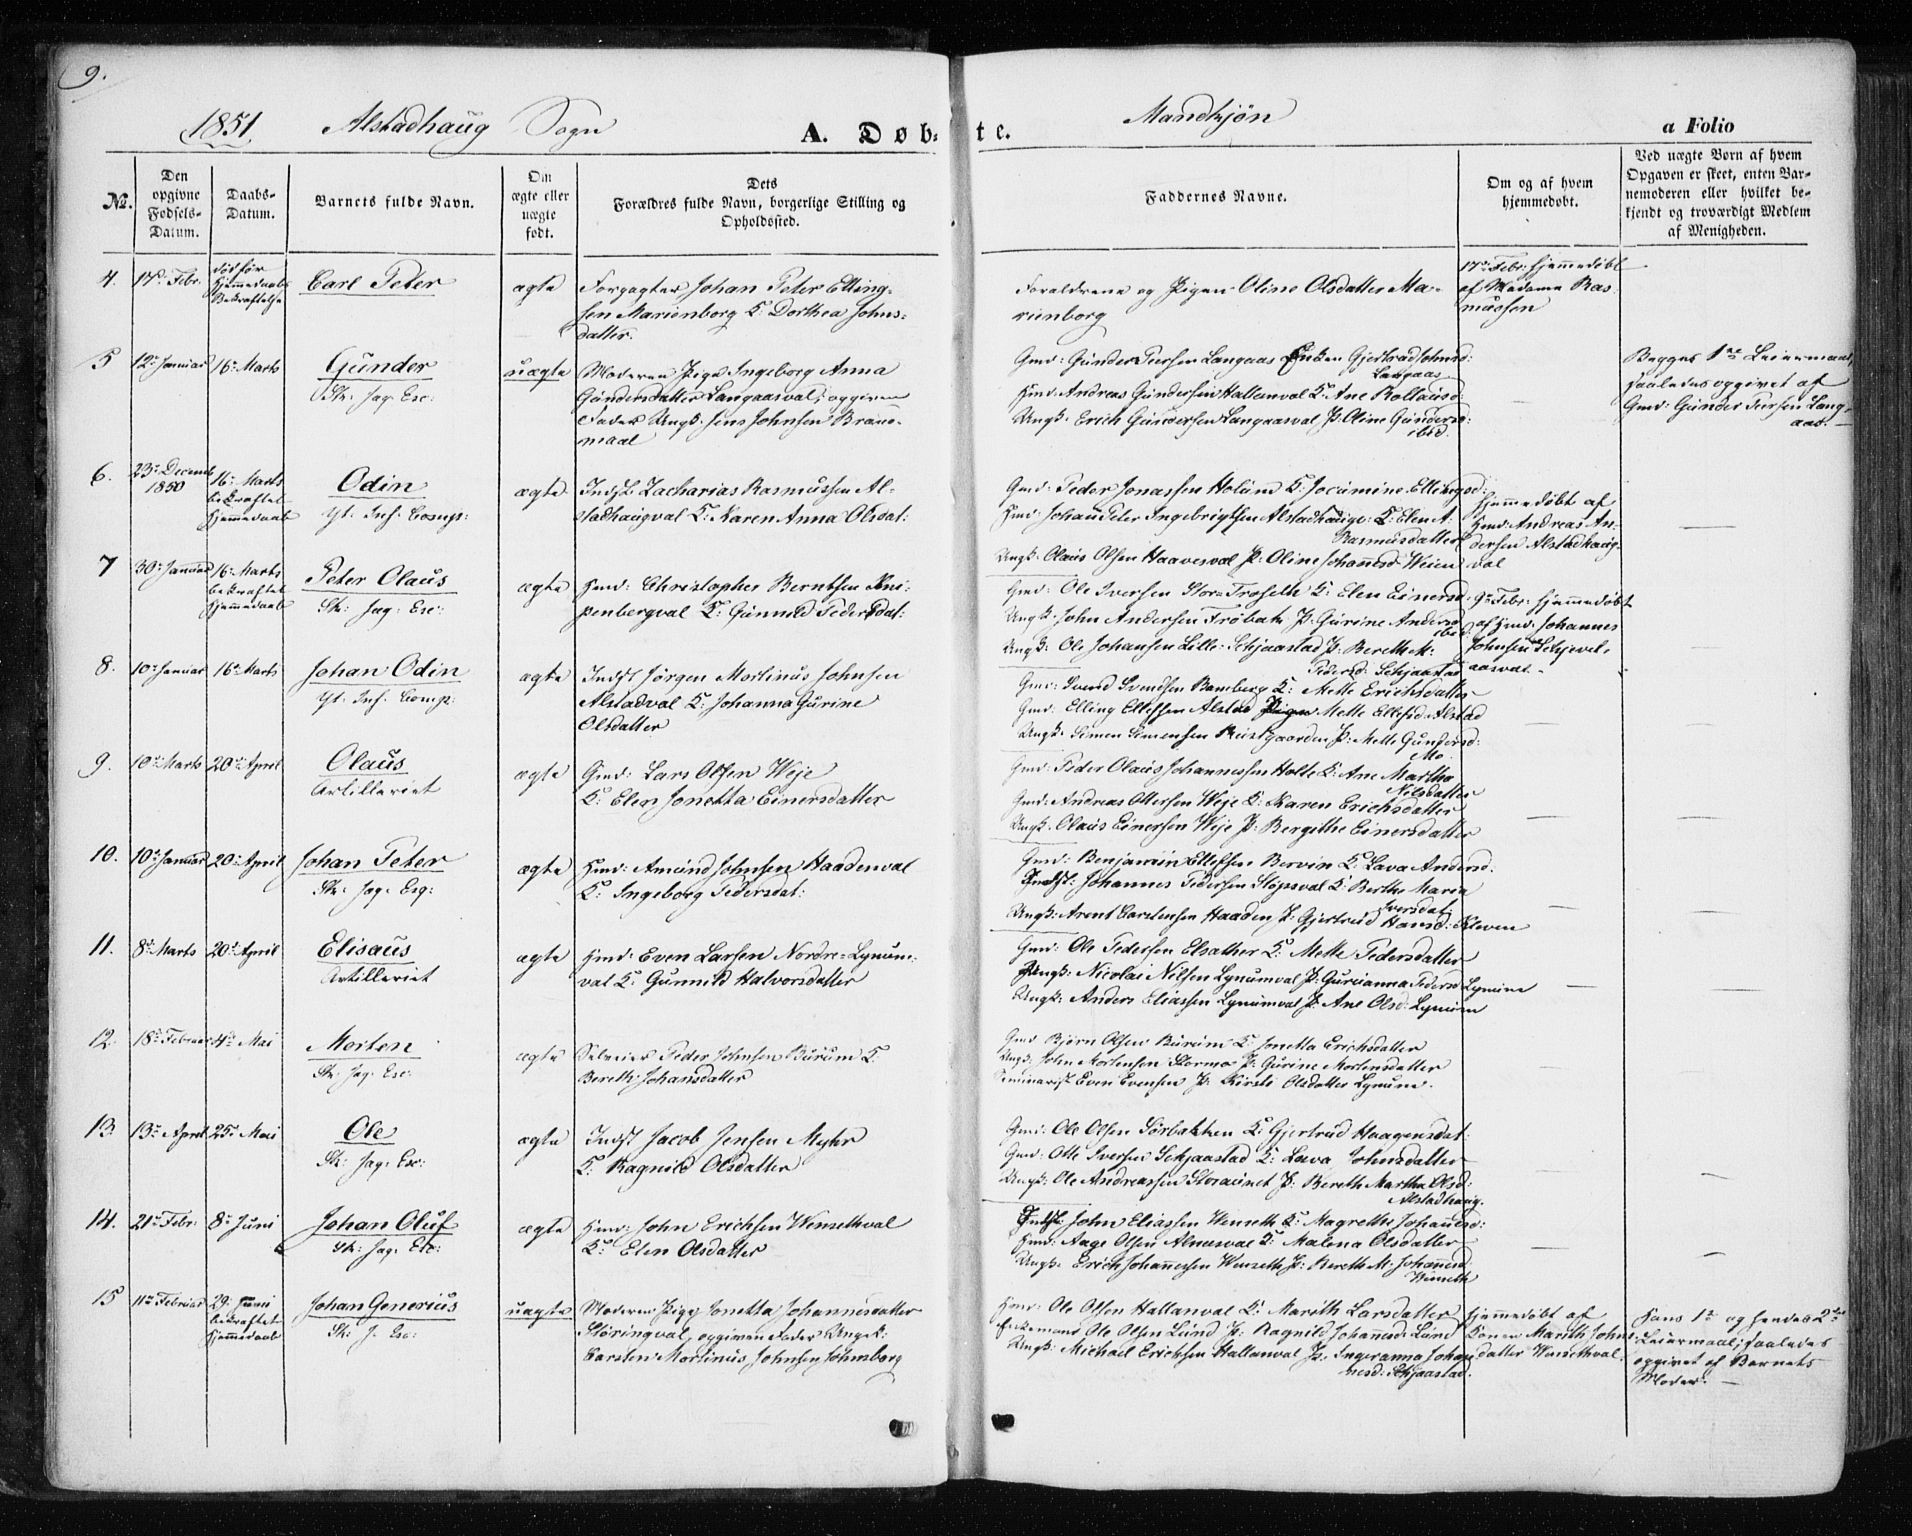 9.
1851 Alstadhaug Sogn A. Døbte. Mandkjøn a Folio
No. Den opgivne Fødsels-Datum. Daabs-Datum. Barnets fulde Navn. Om ægte eller uægte født. Dets Forældres fulde Navn, borgerlige Stilling og Opholdssted. Faddernes Navne. Om og af hvem hjemmedøbt. Ved uægte Børn af hvem Opgaven er skeet, enten Barnemoderen eller hvilket bekjendt og troværdigt Medlem af Menigheden.
4. 17de Febr. død før Hjemmedaabs Bekræftelse Carl Peter ægte Forpagter Johan Peter Elling-
sen Marienborg K. Dorthea Johns-
datter.
Forældrene og Pigen Oline Olsdatter Ma-
rienborg
17de Febr. hjemmedøbt
af Madame Ras
mussen
5 12te Januar 16de Marts Gunder uægte Moderen Pige Ingeborg Anna
Str: Jag. Esc: Gundersdatter Langaasval, opgiven
Fader Ungk. Jens Johnsen Braae-
maal
Gmd: Gunder Peersen Langaas Enken Gjertrud Johnsd:
Langaas
Hmd: Andreas Gundersen Hallanval K. Ane Rollausd:
Ungk: Erich Gundersen Langaasval P: Oline Gundersd:
ibid.
Begges 1ste Leiermaal,
saaledes opgivet af
Gmd: Gunder Peersen Lang-
aas.
6. 23de Decemb 1850 16de Marts bekræftet Hjemmedaab Odin ægte Indst Zacharias Rasmussen Al-
Yt. Inf. Comp: stadhaugval K: Karen Anna Olsdat:
Gmd: Peder Jonassen Holum K: Jocumine Ellingsd:
Hmd: Johan Peter Ingebrigtsen Alstadhauge: K: Elen A.
Rasmusdatter
Ungk: Olaus Olsen Haavesval P: Oline Johannesd Weien
Hjemmedøbt af
Hmd: Andreas An-
dersen Alstadhaug-
val
7 30te Januar 16de Marts bekræftet Hjemmedaab Peter Olaus ægte Hmd: Christopher Berntsen Kni-
Str: Jag: Esc: penbergval K: Gunnild Pedersdat:
Gmd: Ole Iversen Store Troseth K: Elen Einersd:
Ungk: John Andersen Frøbak P: Gurine Andersd
ibid
Ungk: Ole Johansen Lille-Schjaastad P: Bereth M:
Pedersd: Schjaastad
9de Febr: hjemmedøbt
af Hmd: Johannes
Johnsen Schjevel-
aasval.
8. 10de Januar 16de Marts Johan Odin ægte Indst Jørgen Mortinus Johnsen
Yt. Inf. Comp: Alstadval K: Johanna Gurine
Olsdatter
Gmd: Svend Svendsen Bamberg K: Mette Erichsdatter
Gmd: Elling Ellefsen Alstad Pigen Mette Ellefsd: Alstad
Ungk: Simen Simensen Reistgaarden P: Mette Gundersd:
Mo.
9. 10de Marts 20de April Olaus ægte Gmd: Lars Olsen Weje
Artilleriet K: Elen Jonetta Einersdatter
Gmd: Peder Olaus Johannessen Holte K: Ane Martha
Nilsdatter
Gmd: Andreas Ottersen Weje K: Karen Erichsdatter
Ungk. Olaus Einersen Weje P: Bergithe Einersdatter
10. 10de Januar 20de April Johan Peter ægte Hmd: Amund Johnsen Haadenval
Str: Jag: Esq: K: Ingeborg Pedersdat:
Gmd: Benjamin Ellefsen Bervin K: Lava Andersd:
Indst: Johannes Pedersen Sløpsval K: Berthe Maria
Iversdat:
Ungk: Arent Carstensen Haaden P: Gjertrud Hansd: Kleven
11. 8de Marts 20de April Elisaus ægte Hmd: Even Larsen Nordre-Lynum-
Artilleriet val K: Gunnild Halvorsdatter
Gmd: Ole Pedersen Elsather K: Mette Pedersdatter
Ungk: Nicolai Nilsen Lynumval P: Gurianna Pedersd Lynum
Ungk: Anders Eliassen Lynumval P: Ane Olsd: Lynum
12. 18de Februar 4de Mai Morten ægte Selveier Peder Johnsen Burum K.
Str: Jag: Esc: Bereth Johansdatter
Gmd Bjørn Olsen Burum K. Jonetta Erichsdatter
Ungk: John Mortensen Stormo P: Gurine Mortensdatter
Seminarist Even Evensen P: Kirsti Olsdatter Lynum.
13. 13de April 25de Mai Ole ægte Indst Jacob Jensen Myhr
Str: Jag: Esc: K. Ragnild Olsdatter
Gmd: Ole Olsen Sørbakken K: Gjertrud Haagensdat:
Gmd: Otte Iversen Schjaastad K: Lava Johnsdatter
Ungk: Ole Andreassen Storaunet P: Bereth Martha Olsd:
Alstadhaug.
14. 21de Febr. 8de Juni Johan Oluf ægte Hmd: John Erichsen Wensethval
Str: Jag: Esc: K: Elen Olsdatter
Indst: John Eliassen Wenseth K: Magrethe Johannesd:
Hmd: Aage Olsen Alnesval K: Malena Olsdatter
Ungk: Erich Johannessen Wenseth P: Bereth M: Johannesd:
Wenseth
15 11te Februar 29de Juni bekræftet Hjemmedaab Johan Generius uægte Moderen Pige Jonetta Johannesdatter
Str: J. Esc: Støringval, opgiven Fader Ungk:
Carsten Martinus Johnsen Johnsborg
Hmd: Ole Olsen Hallanval K: Marith Larsdatter
Enkemand Ole Olsen Lund P: Ragnild Johannesd: Lund
Ungk: Michael Erichsen Hallanval P: Ingeranna Johan
nesd: Schjaastad.
Hjemmedøbt af
Konen Marith Johns
datter Wensethval.
Hans 1ste og hendes 2det
Leiermaal, saaledes
opgivet af Barnets
Moder.